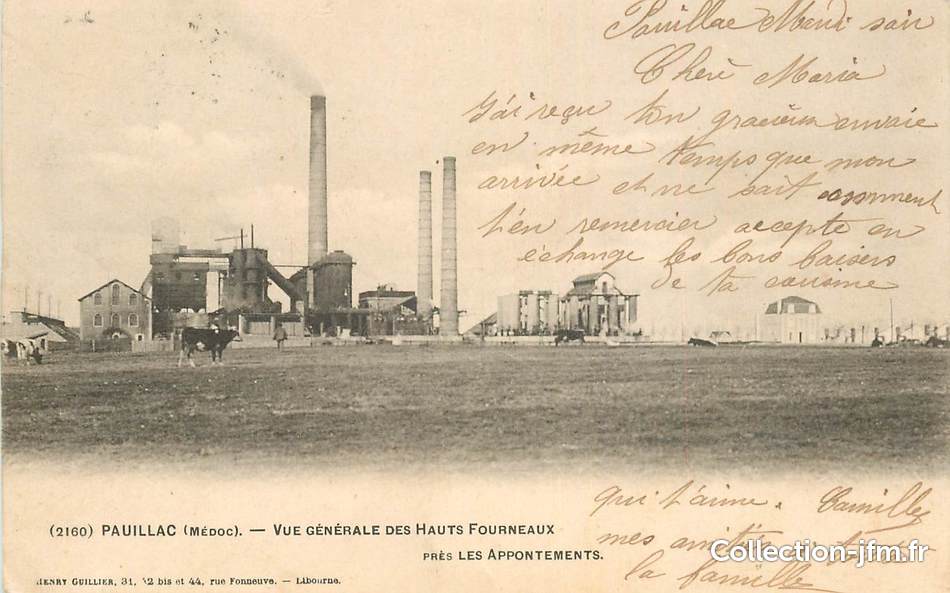 Pauillac Mardi soir
Chère Maria
J'ai reçu ton gracieux envoie
en même temps que mon
arrivée et ne sait comment
t'en remercier accepte en
échange les bons baisers
de ta cousine
qui t'aime. Camille
mes amitiés à toute
la famille
Collection-jfm.fr
(2160) PAUILLAC (MÉDOC). — VUE GÉNÉRALE DES HAUTS FOURNEAUX
PRÈS LES APPONTEMENTS.
HENRY GUILLIER, 31, 42 bis et 44, rue Fonneuve. — Libourne.